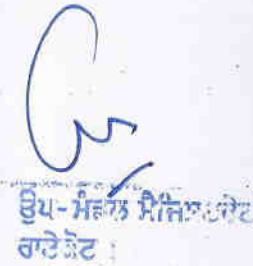 ਉਪ-ਮੰਡਲ ਮੈਜਿਸਟਰੇਟ
ਰਾਏਕੋਟ